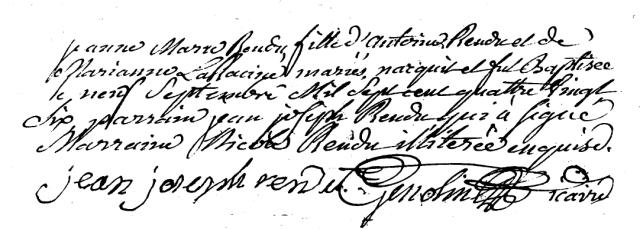 jeanne Marie Rendu, fille d'Antoine Rendu et de
Marianne Laracine mariés, naquit et fut Baptisée
le neuf Septembre Mil Sept cent quattre Vingt
Six parrain jean joseph Rendu qui a signé
Marraine Nicole Rendu illiterée enquise.
jean joseph rendu